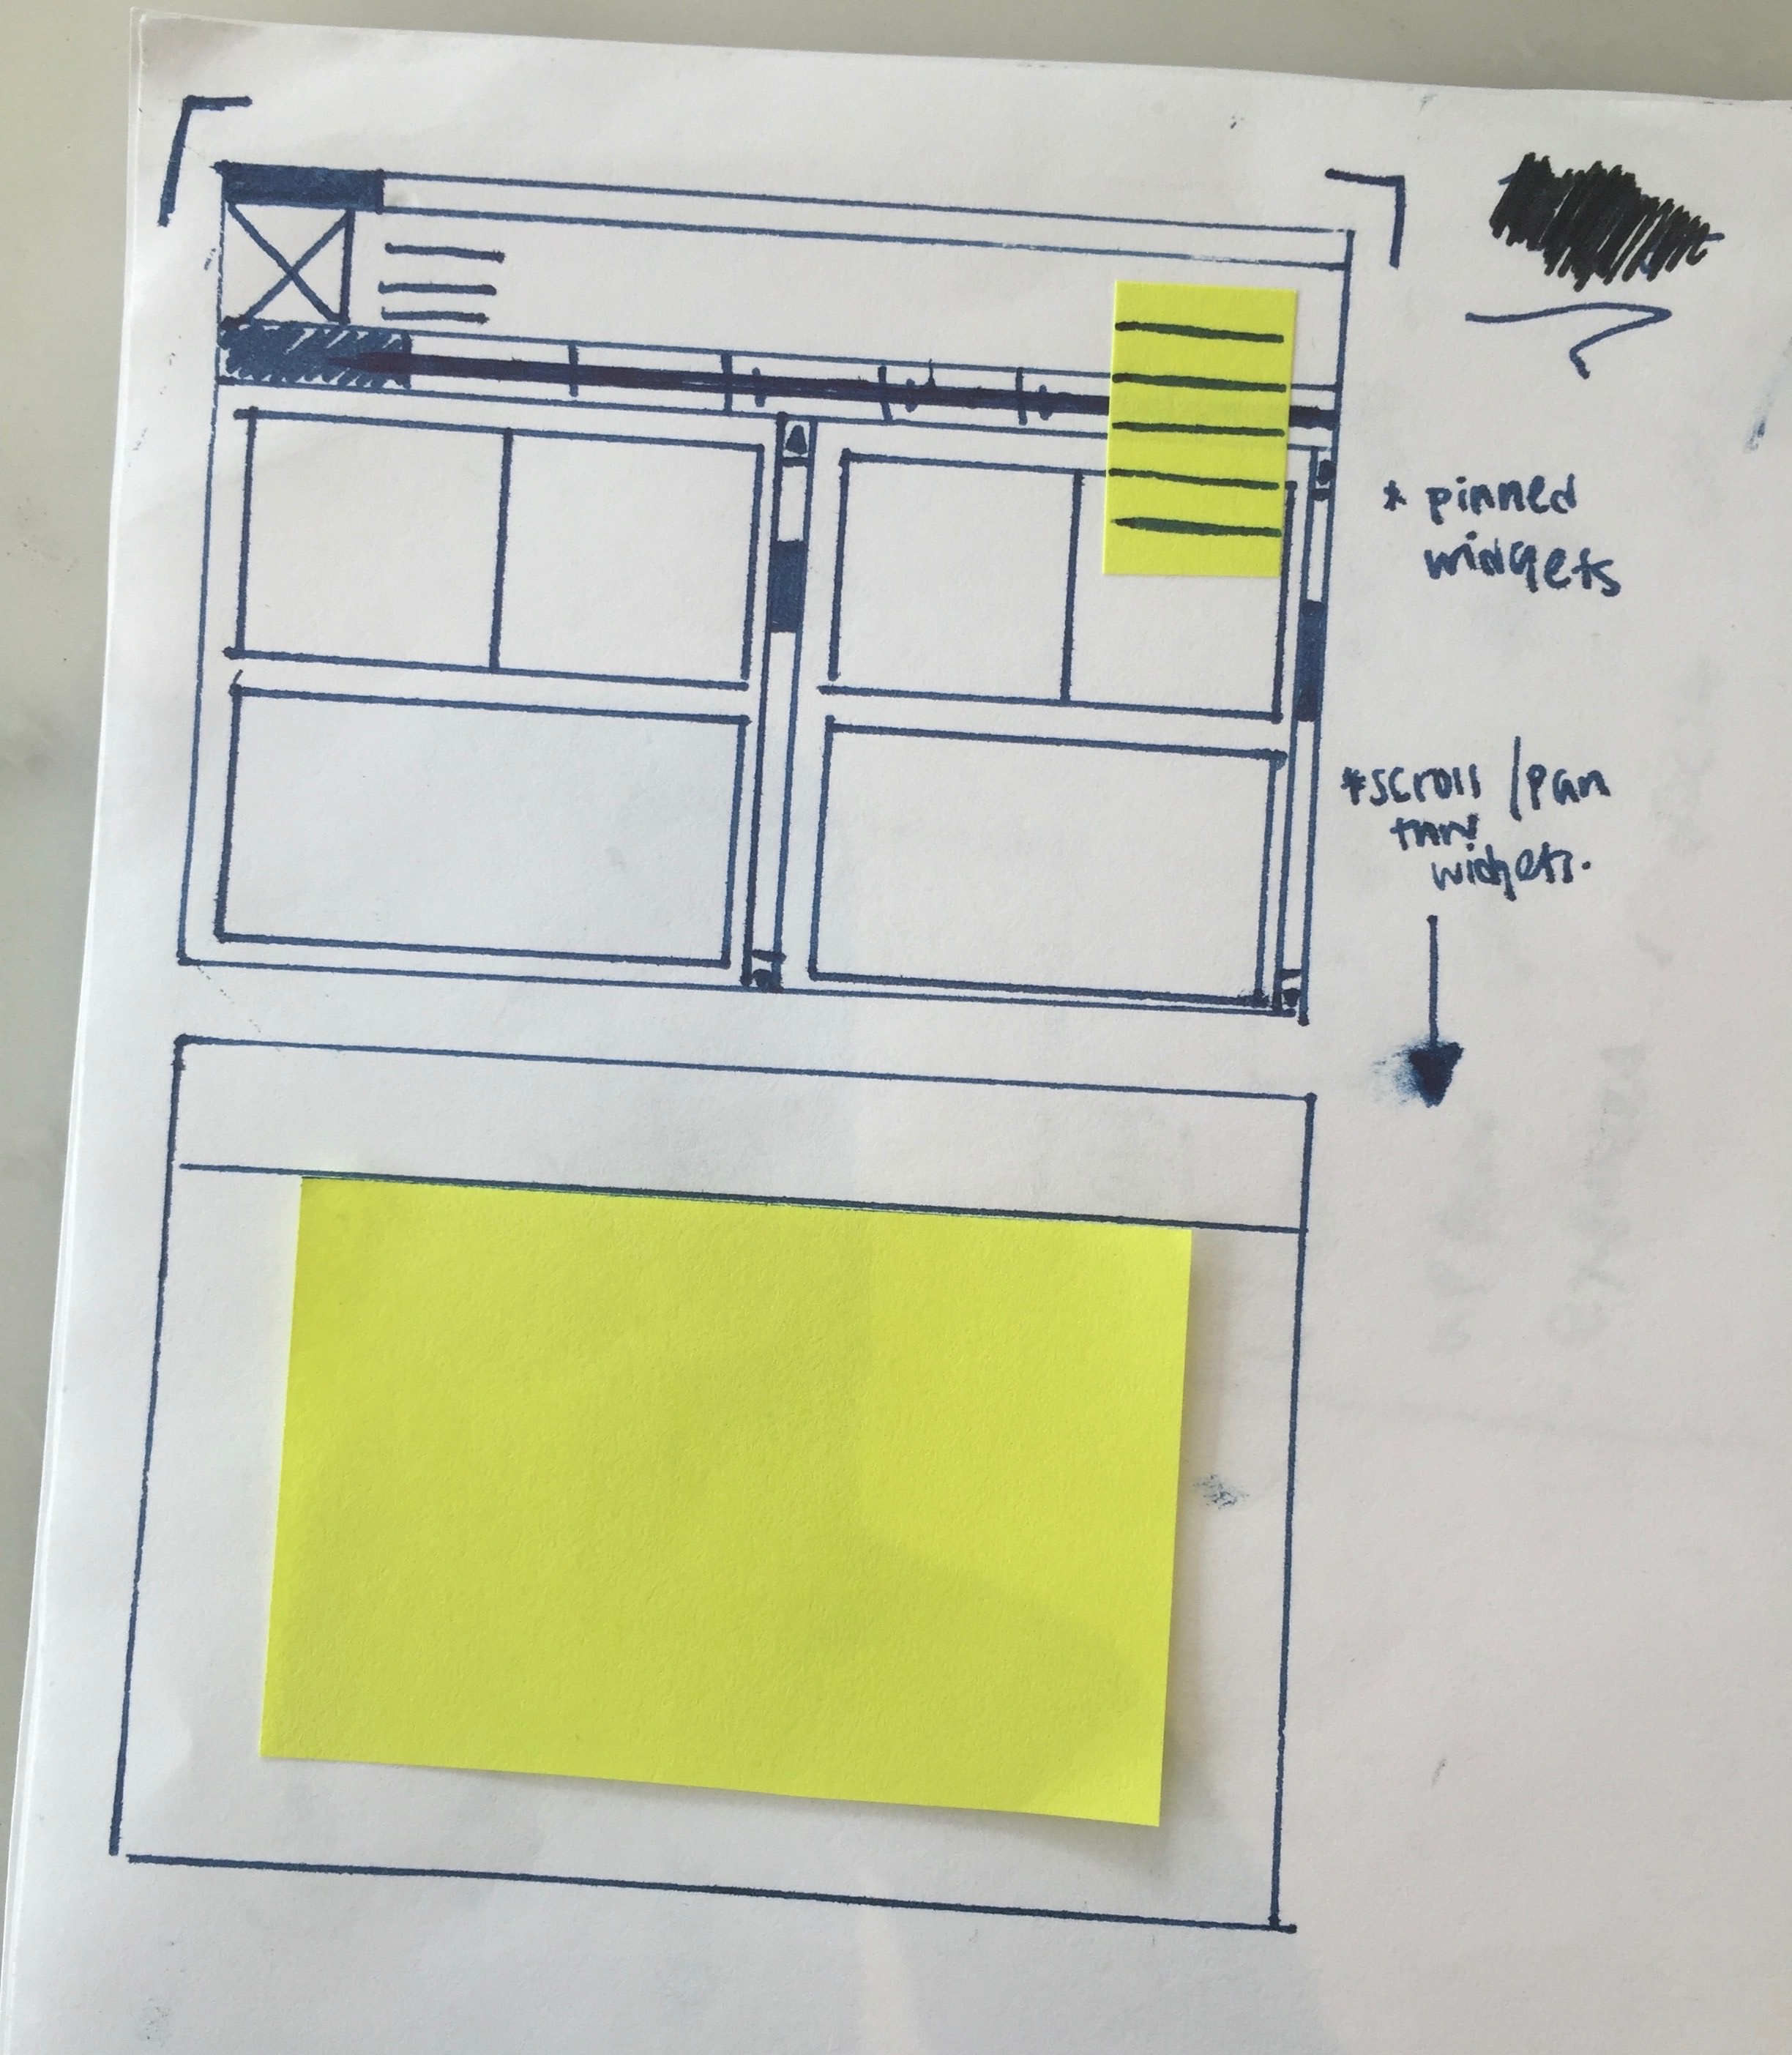 * pinned
widgets
*scroll /pan
thru
widgets.